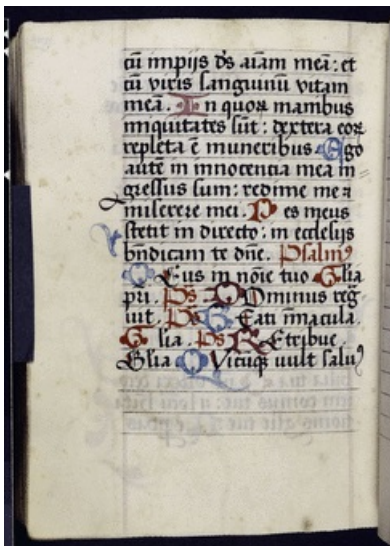 cū impijs ds aīam meā: et
cū viris sanguinū vitam
meā. In quoꝝ manibus
iniquitates sūt: dextera eoꝝ
repleta ē muneribus. Ago
autē in innocentia mea in
gressus sum: redime me ⁊
miserere mei. Pes meus
stetit in directo: in ecclesijs
bn̄dicam te dn̄e. Psalmꝰ
Deus in noīe tuo Glia
pri. Ps Dominus reg
uit. Ps Beati īmacula.
Glia. Ps Retribue.
Glia Quicūqꝫ vult saluꝰ